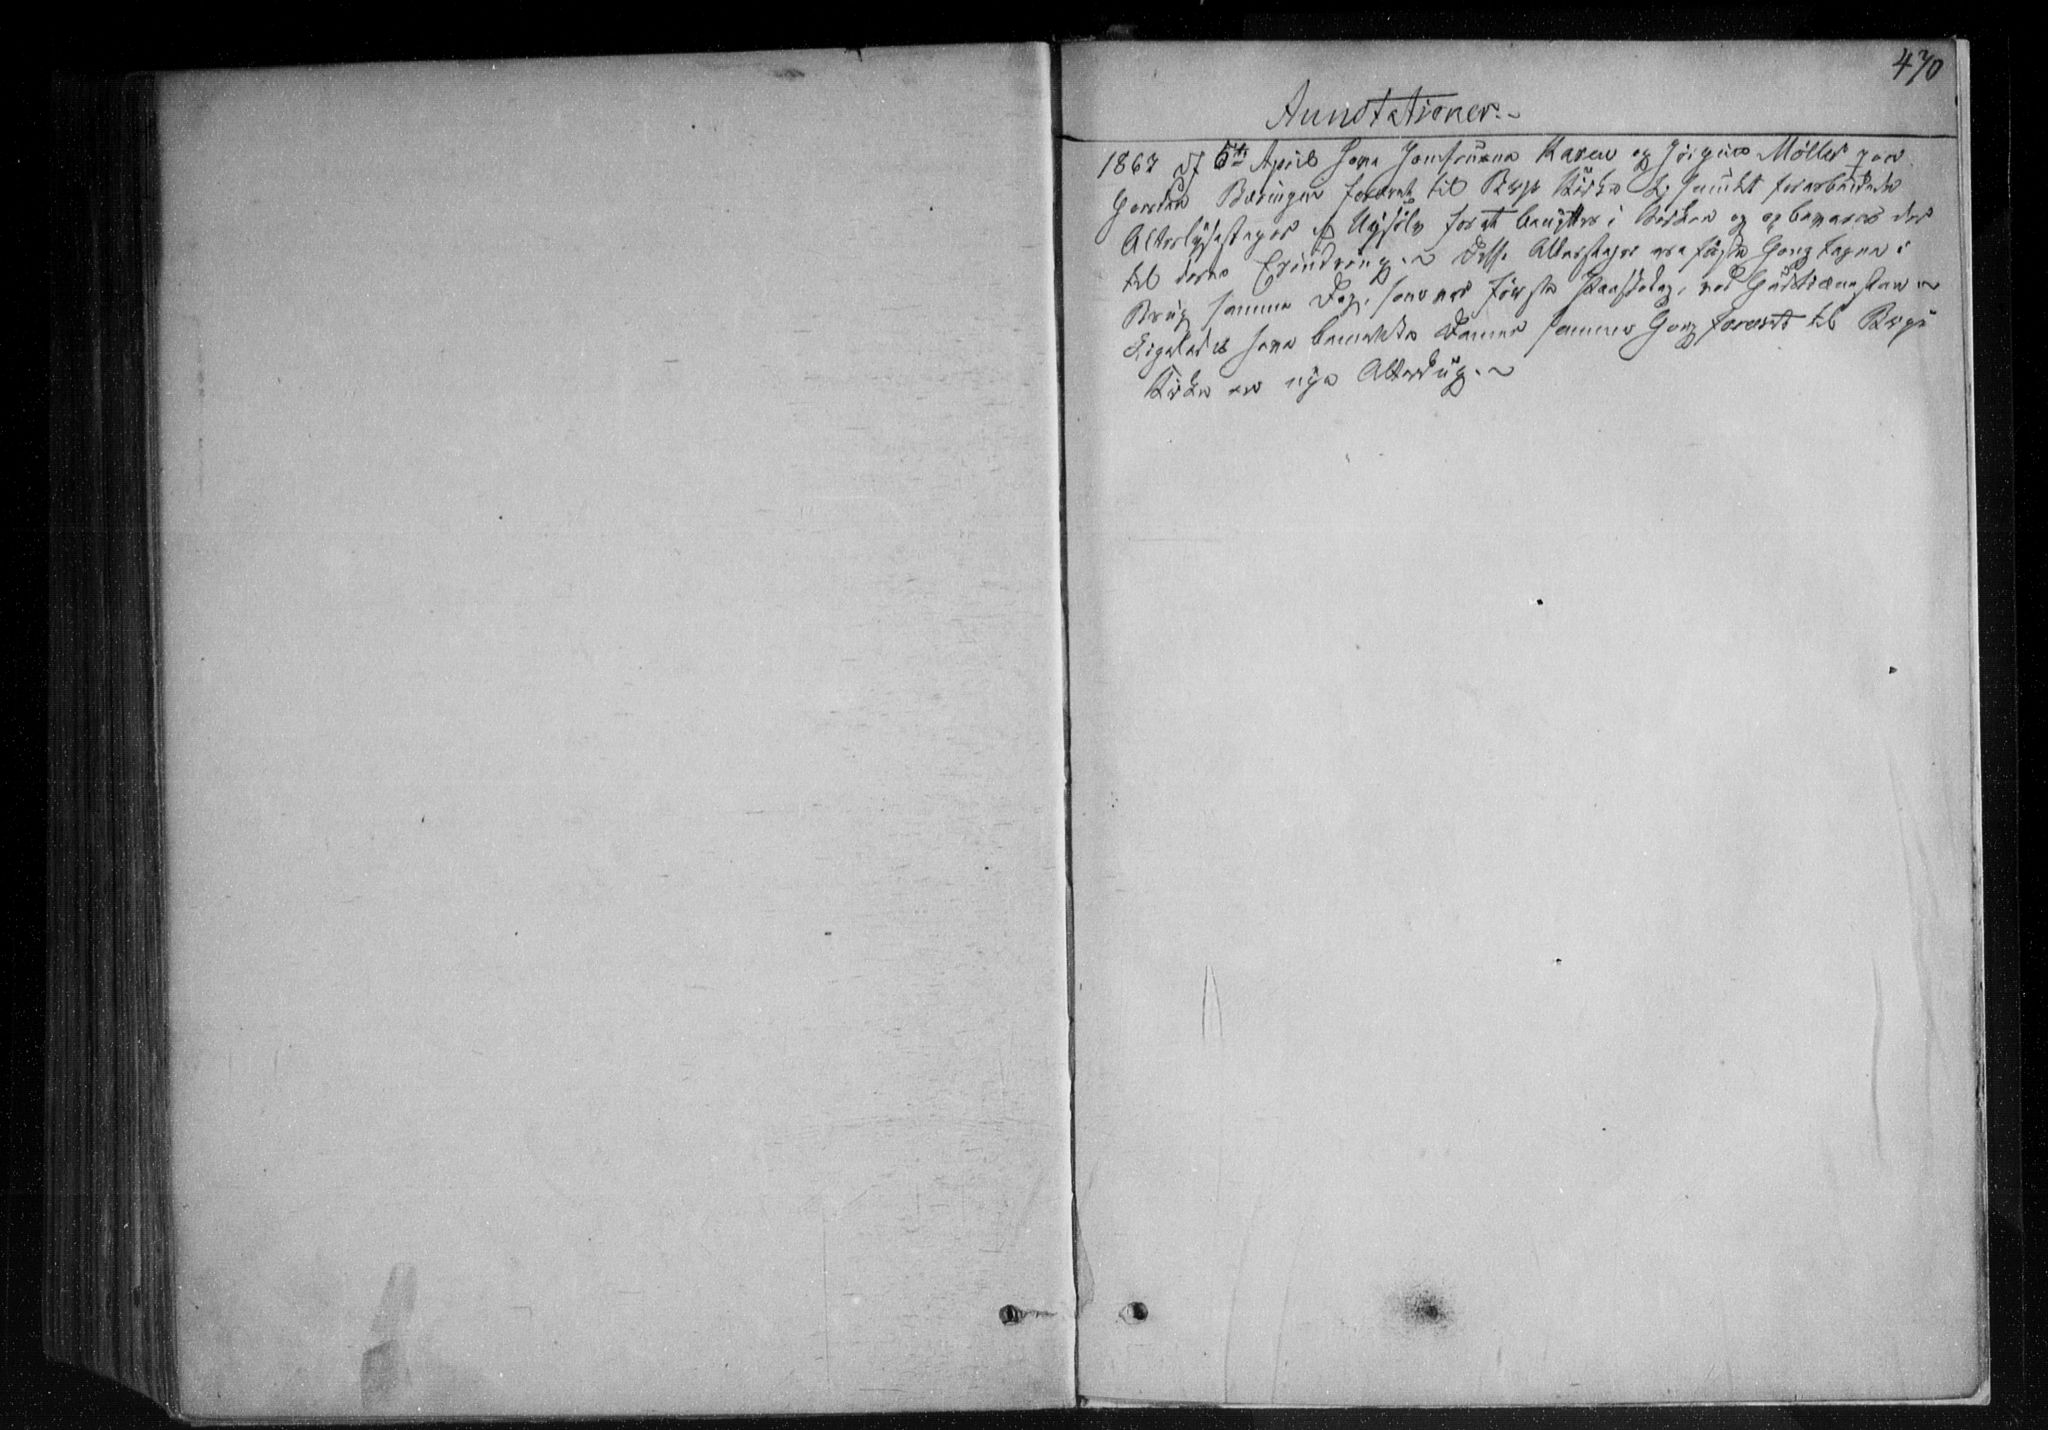 470
Annotationer.
1863 d 5te April have Jomfruerne Karen og Jørgine Møller paa
Gaarden Bæringen foræret til Berge Kirke 2 smukt forarbeidede
Alterlysestager af Nysølv for at benyttes i Kirken og opbevares der
til deres Erindring. Disse Alterstager ere første Gang tagne i
Brug samme Dag, som var første Paaskedag, ved Gudstjenesten
Ligeledes have bemeldte Damer samme Gang foræret til Berge
Kirke en nye Alterdug.